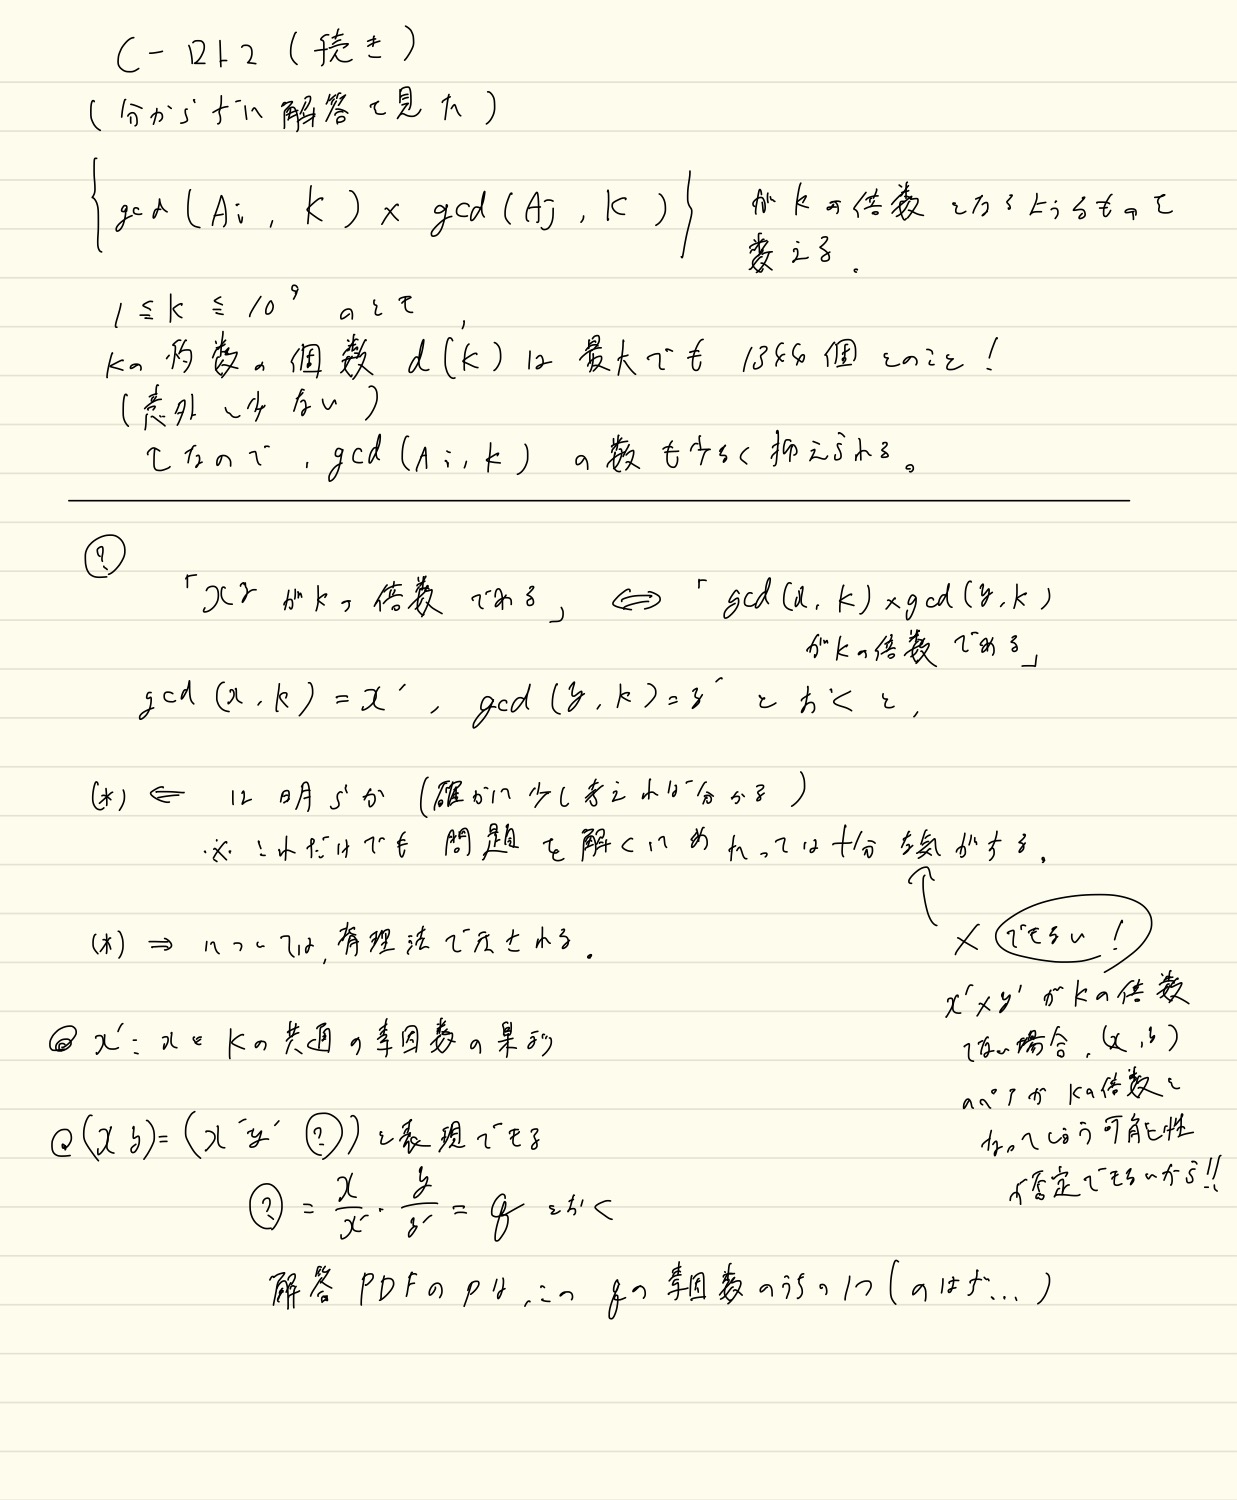 (分からずに解答を見た)
{gcd(Ai, K) × gcd(Aj, K)} がKの倍数となるようなものを
数える。
1 ≦ K ≦ 10⁹ のとき,
Kの約数の個数 d(K) は最大でも 1344個とのこと!
(意外と少ない)
なので, gcd(Ai, K) の数も少なく抑えられる。
?
「xyがKの倍数である」 ⇔ 「gcd(x, K) × gcd(y, K)
がKの倍数である」
gcd(x, K) = x′, gcd(y, K) = y′ とおくと,
(*) ⇐ は明らか (確かに少し考えれば分かる)
※ これだけでも問題を解くにあたっては十分な気がする.
(*) ⇒ については, 背理法で示される.
× できない!
x′×y′ がKの倍数
でない場合, (x, y)
のペアがKの倍数と
なってしまう可能性
が否定できないから!!
◎ x′: xとKの共通の素因数の累積
◎ (xy) = (x′y′ ?) と表現できる
? = x/x′ · y/y′ = q とおく
解答PDFのpは, この qの素因数のうちの1つ (のはず...)